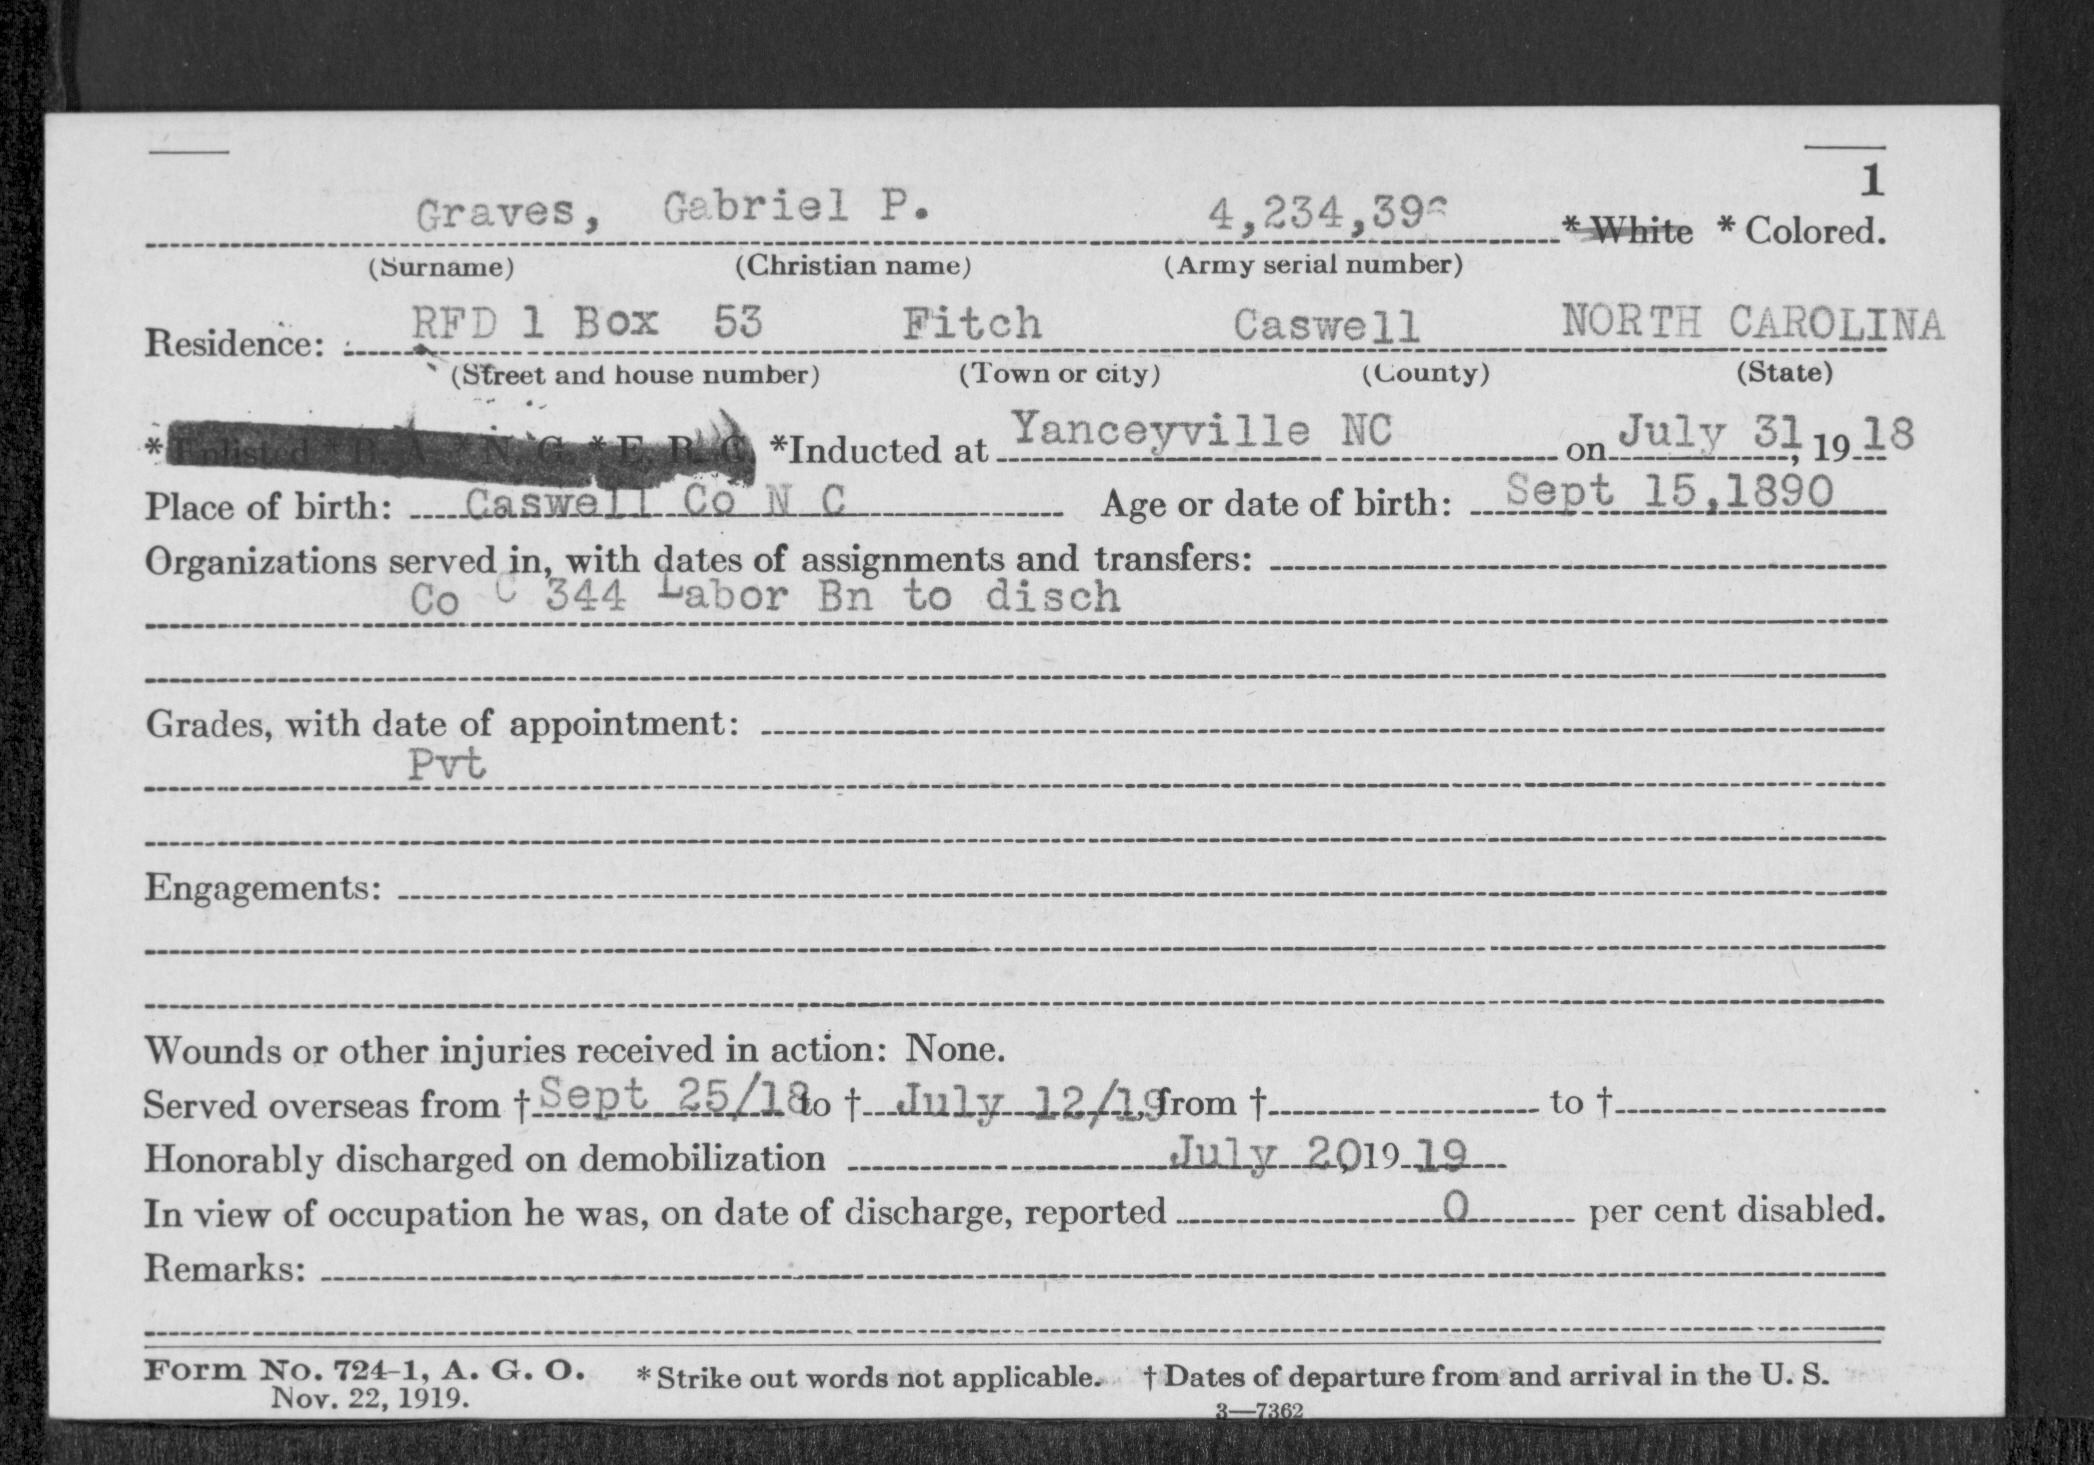 1
Graves, Gabriel P. * White * Colored.
(Surname) (Christian name) (Army serial number)
Residence: RFD 1 Box 53 Fitch Caswell NORTH CAROLINA
(Street and house number) (Town or city) (County) (State)
* Enlisted * R. A. * N. G. * E. R. C. *Inducted at Yanceyville NC on July 31, 1918
Place of birth: Caswell Co N C Age or date of birth: Sept 15,1890
Organizations served in, with dates of assignments and transfers:
Co C 344 Labor Bn to disch
Grades, with date of appointment:
Pvt
Engagements:
Wounds or other injuries received in action: None.
Served overseas from † Sept 25/18 to † July 12/19, from † to †
Honorably discharged on demobilization July 20, 1919
In view of occupation he was, on date of discharge, reported 0 per cent disabled.
Remarks:
Form No. 724-1, A. G. O. * Strike out words not applicable. † Dates of departure from and arrival in the U. S.
Nov. 22, 1919. 3—7362